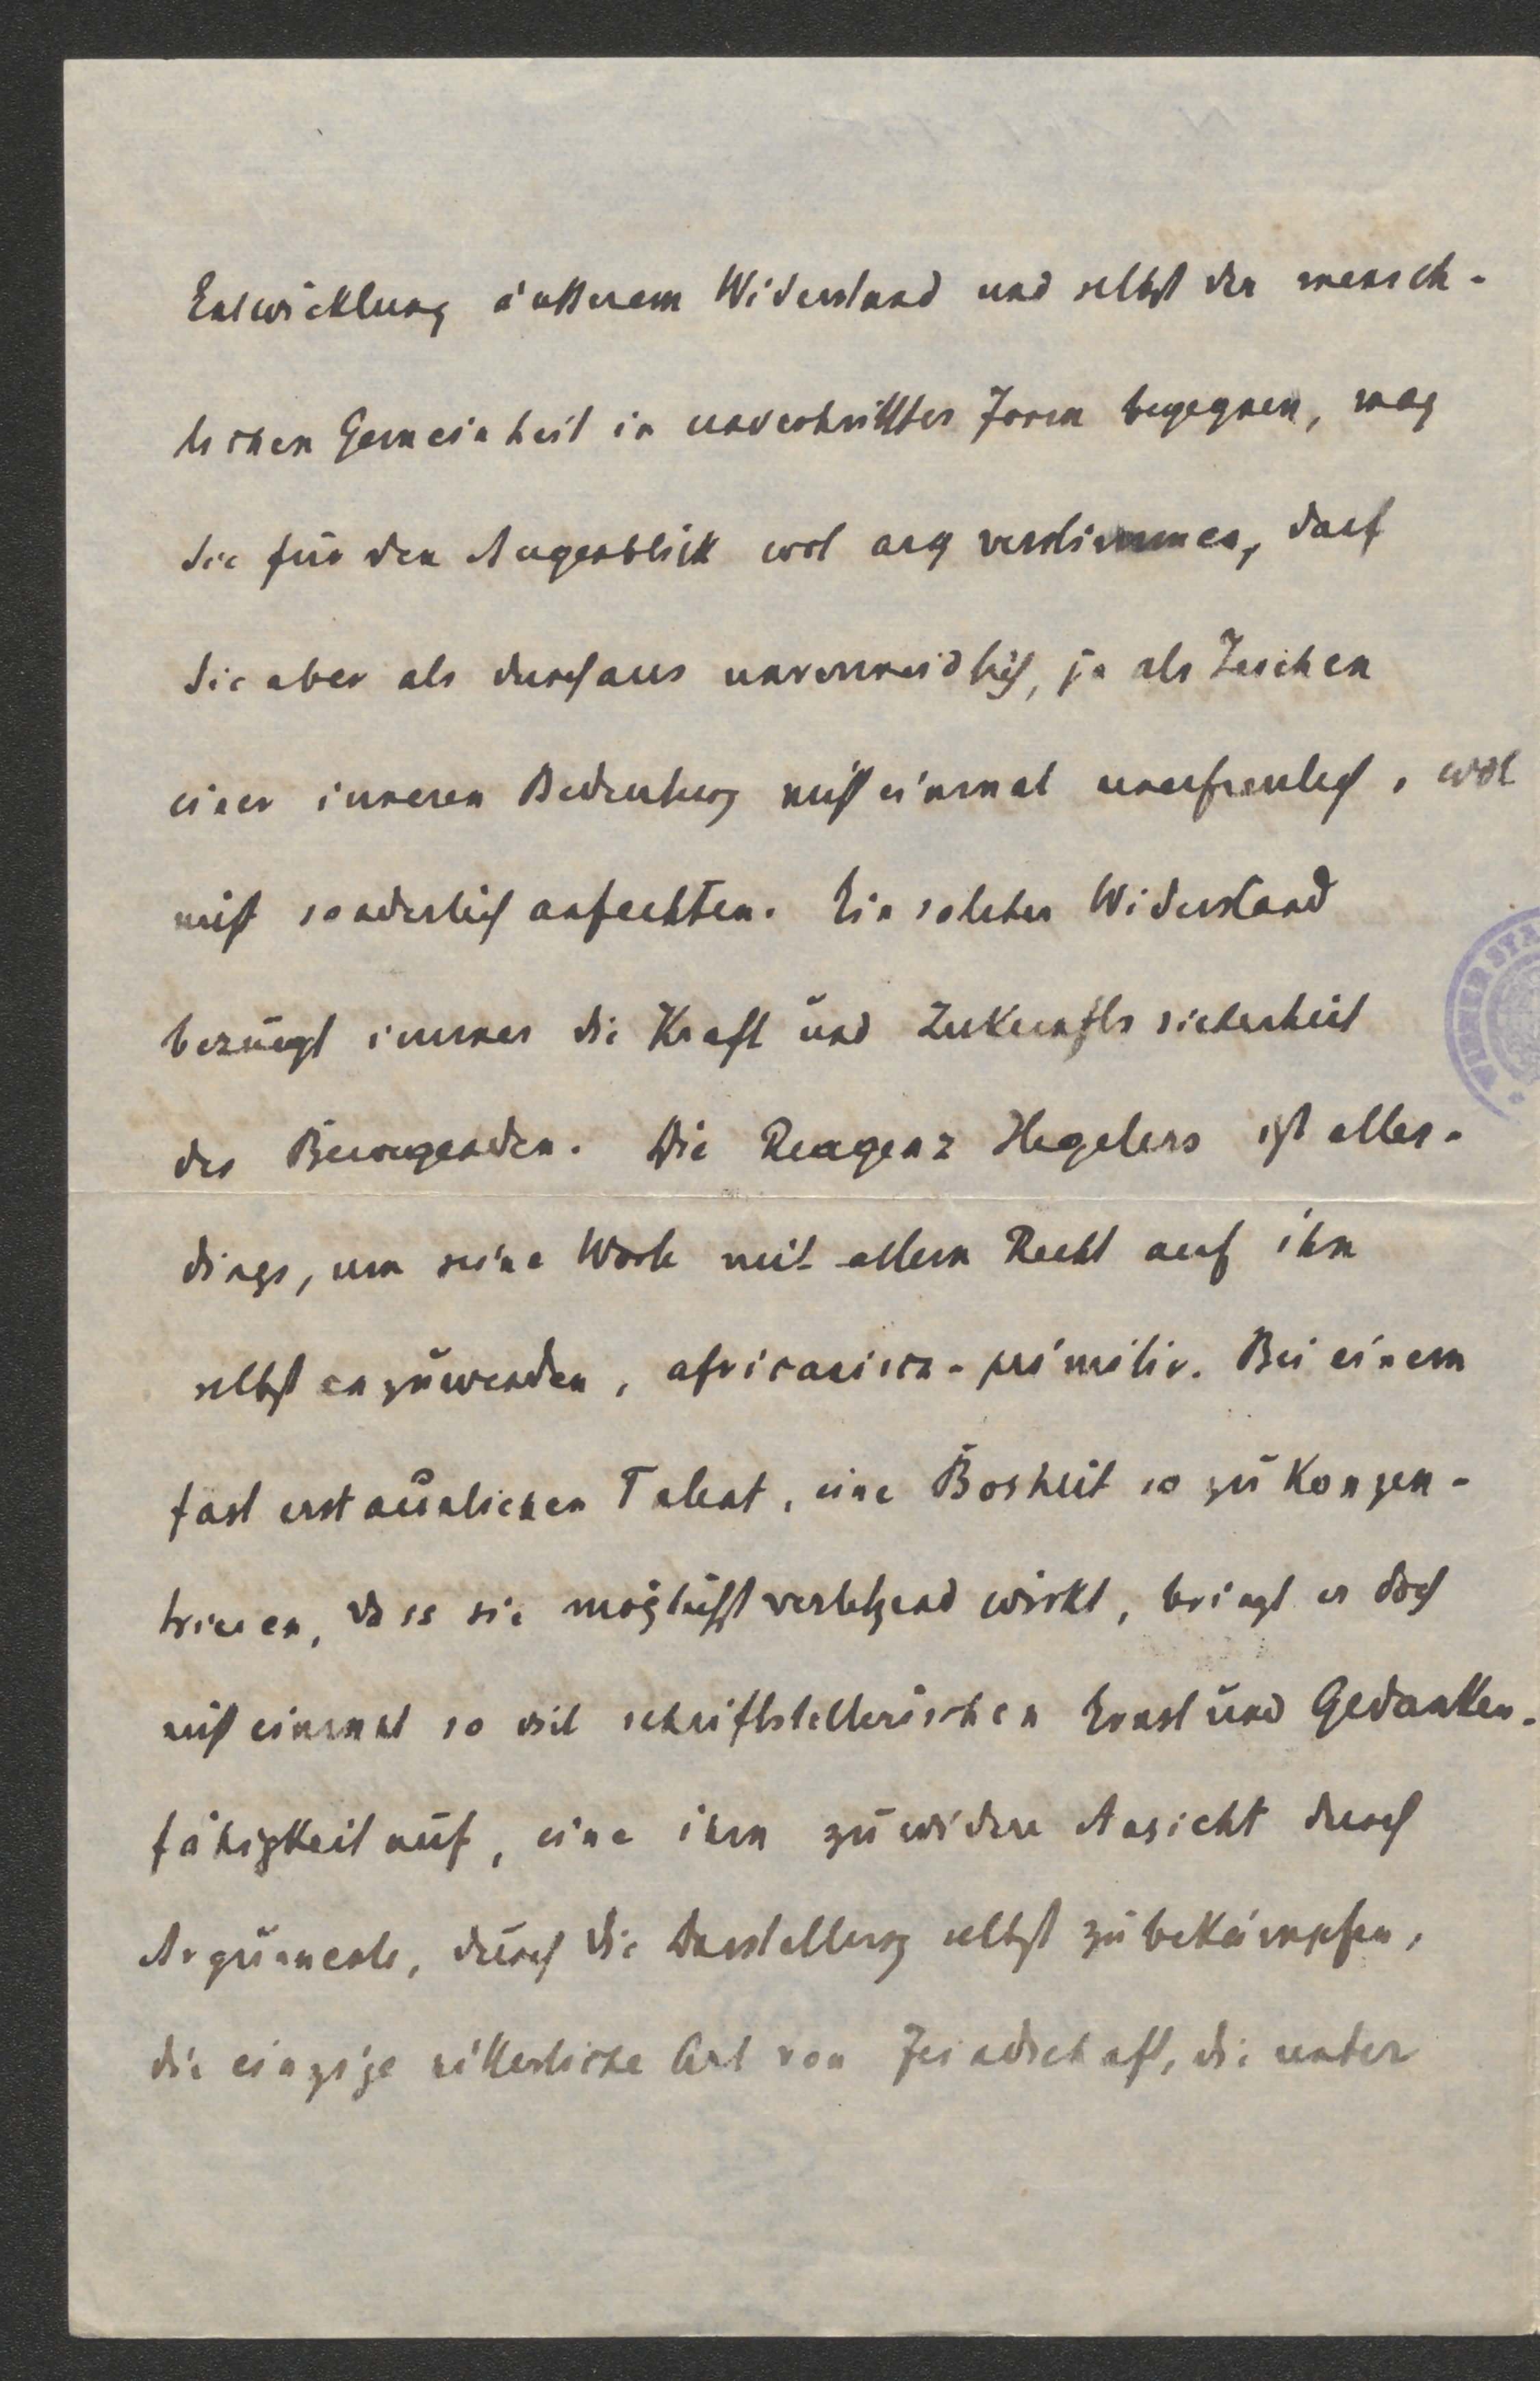 Entwicklung äusserem Widerstand und selbst der mensch-
lichen Gemeinheit in unverhüllter Form begegnen, mag
Sie für den Augenblick wol arg verstimmen, darf
Sie aber als durchaus unvermeidlich, ja als Zeichen
einer inneren Bedeutung nicht einmal unerfreulich, wol
nicht sonderlich anfechten. Ein solcher Widerstand
bezeugt immer die Kraft und Zukunftssicherheit
des Bewegenden. Die Reagenz Hegelers ist aller-
dings, um seine Worte mit allem Recht auf ihn
selbst anzuwenden, africanisch-primitiv. Bei einem
fast erstaunlichen Talent, eine Bosheit so zu konzen-
trieren, dass sie möglichst verletzend wirkt, bringt er doch
nicht einmal so viel schriftstellerischen Ernst und Gedanken-
fähigkeit auf, eine ihm zuwidere Ansicht durch
Argumente, durch die Darstellung selbst zu bekämpfen,
die einzige ritterliche Art von Feindschaft, die unter
WIENER STA